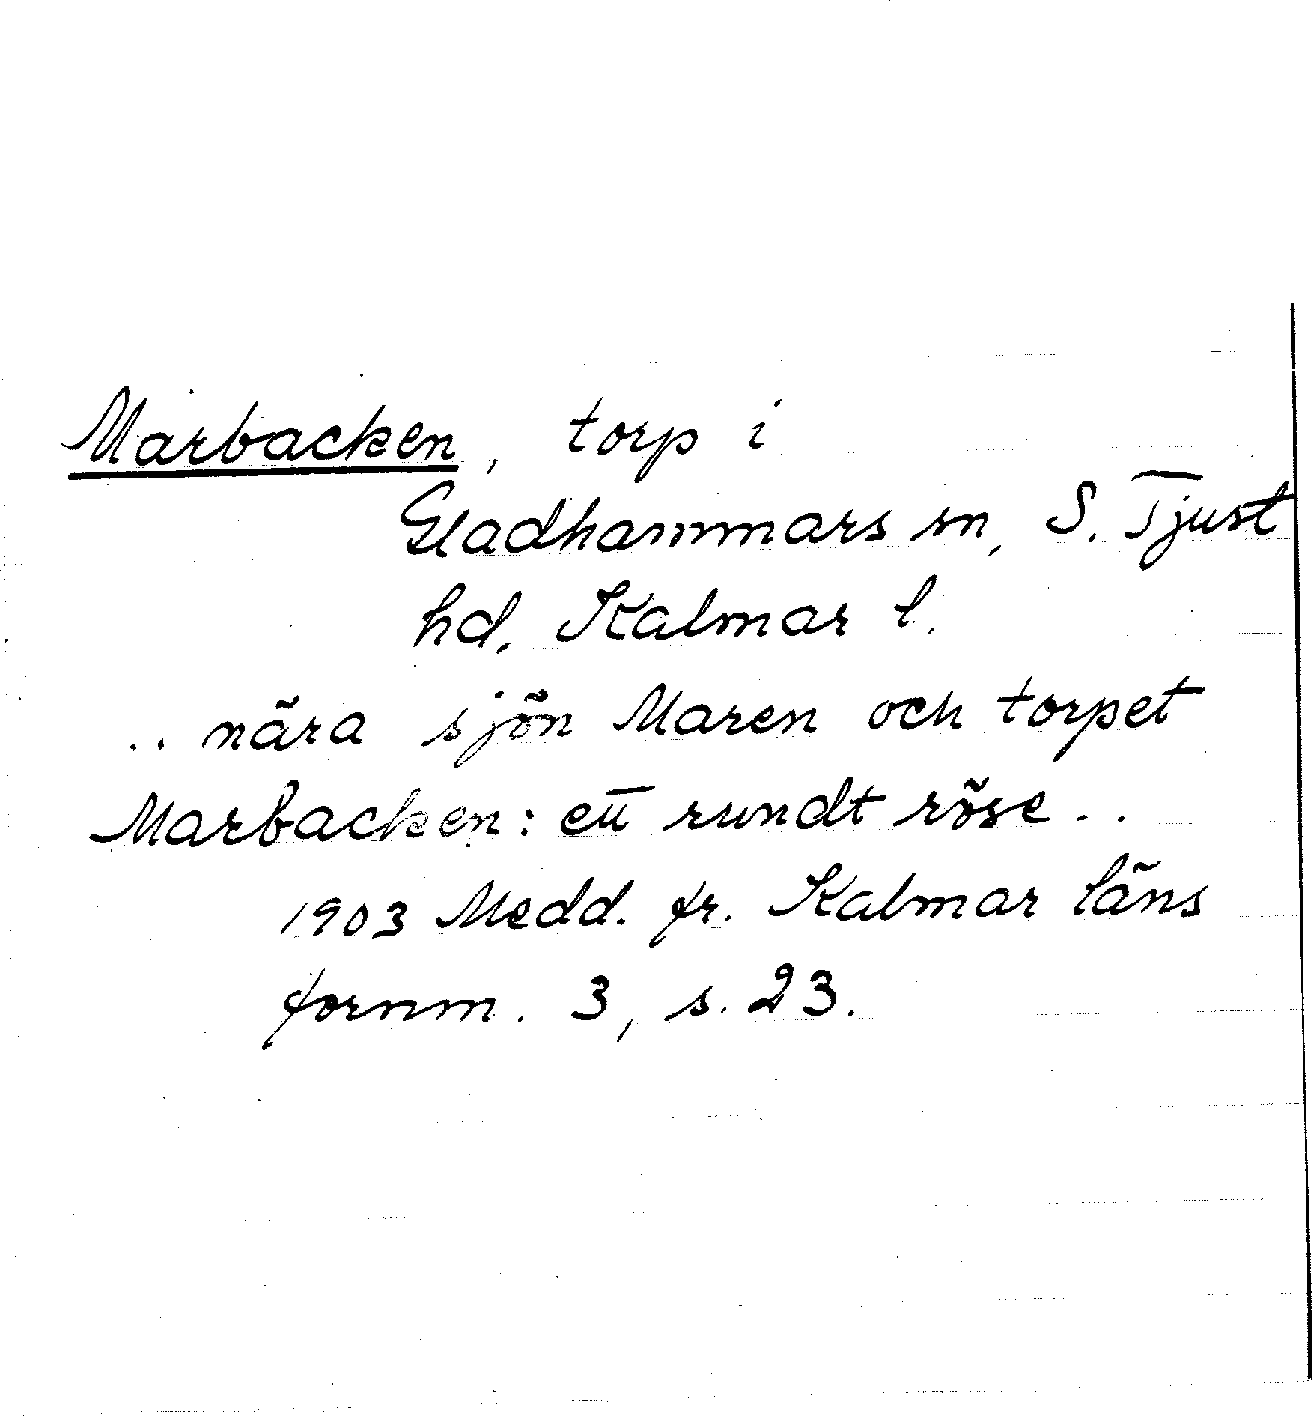 Marbacken, torp i
Gladhammars sn, S. Tjust
hd, Kalmar l.
.. nära sjön Maren och torpet
Marbacken: ett rundt röse..
1903 Medd. fr. Kalmar läns
fornm. 3, s. 23.